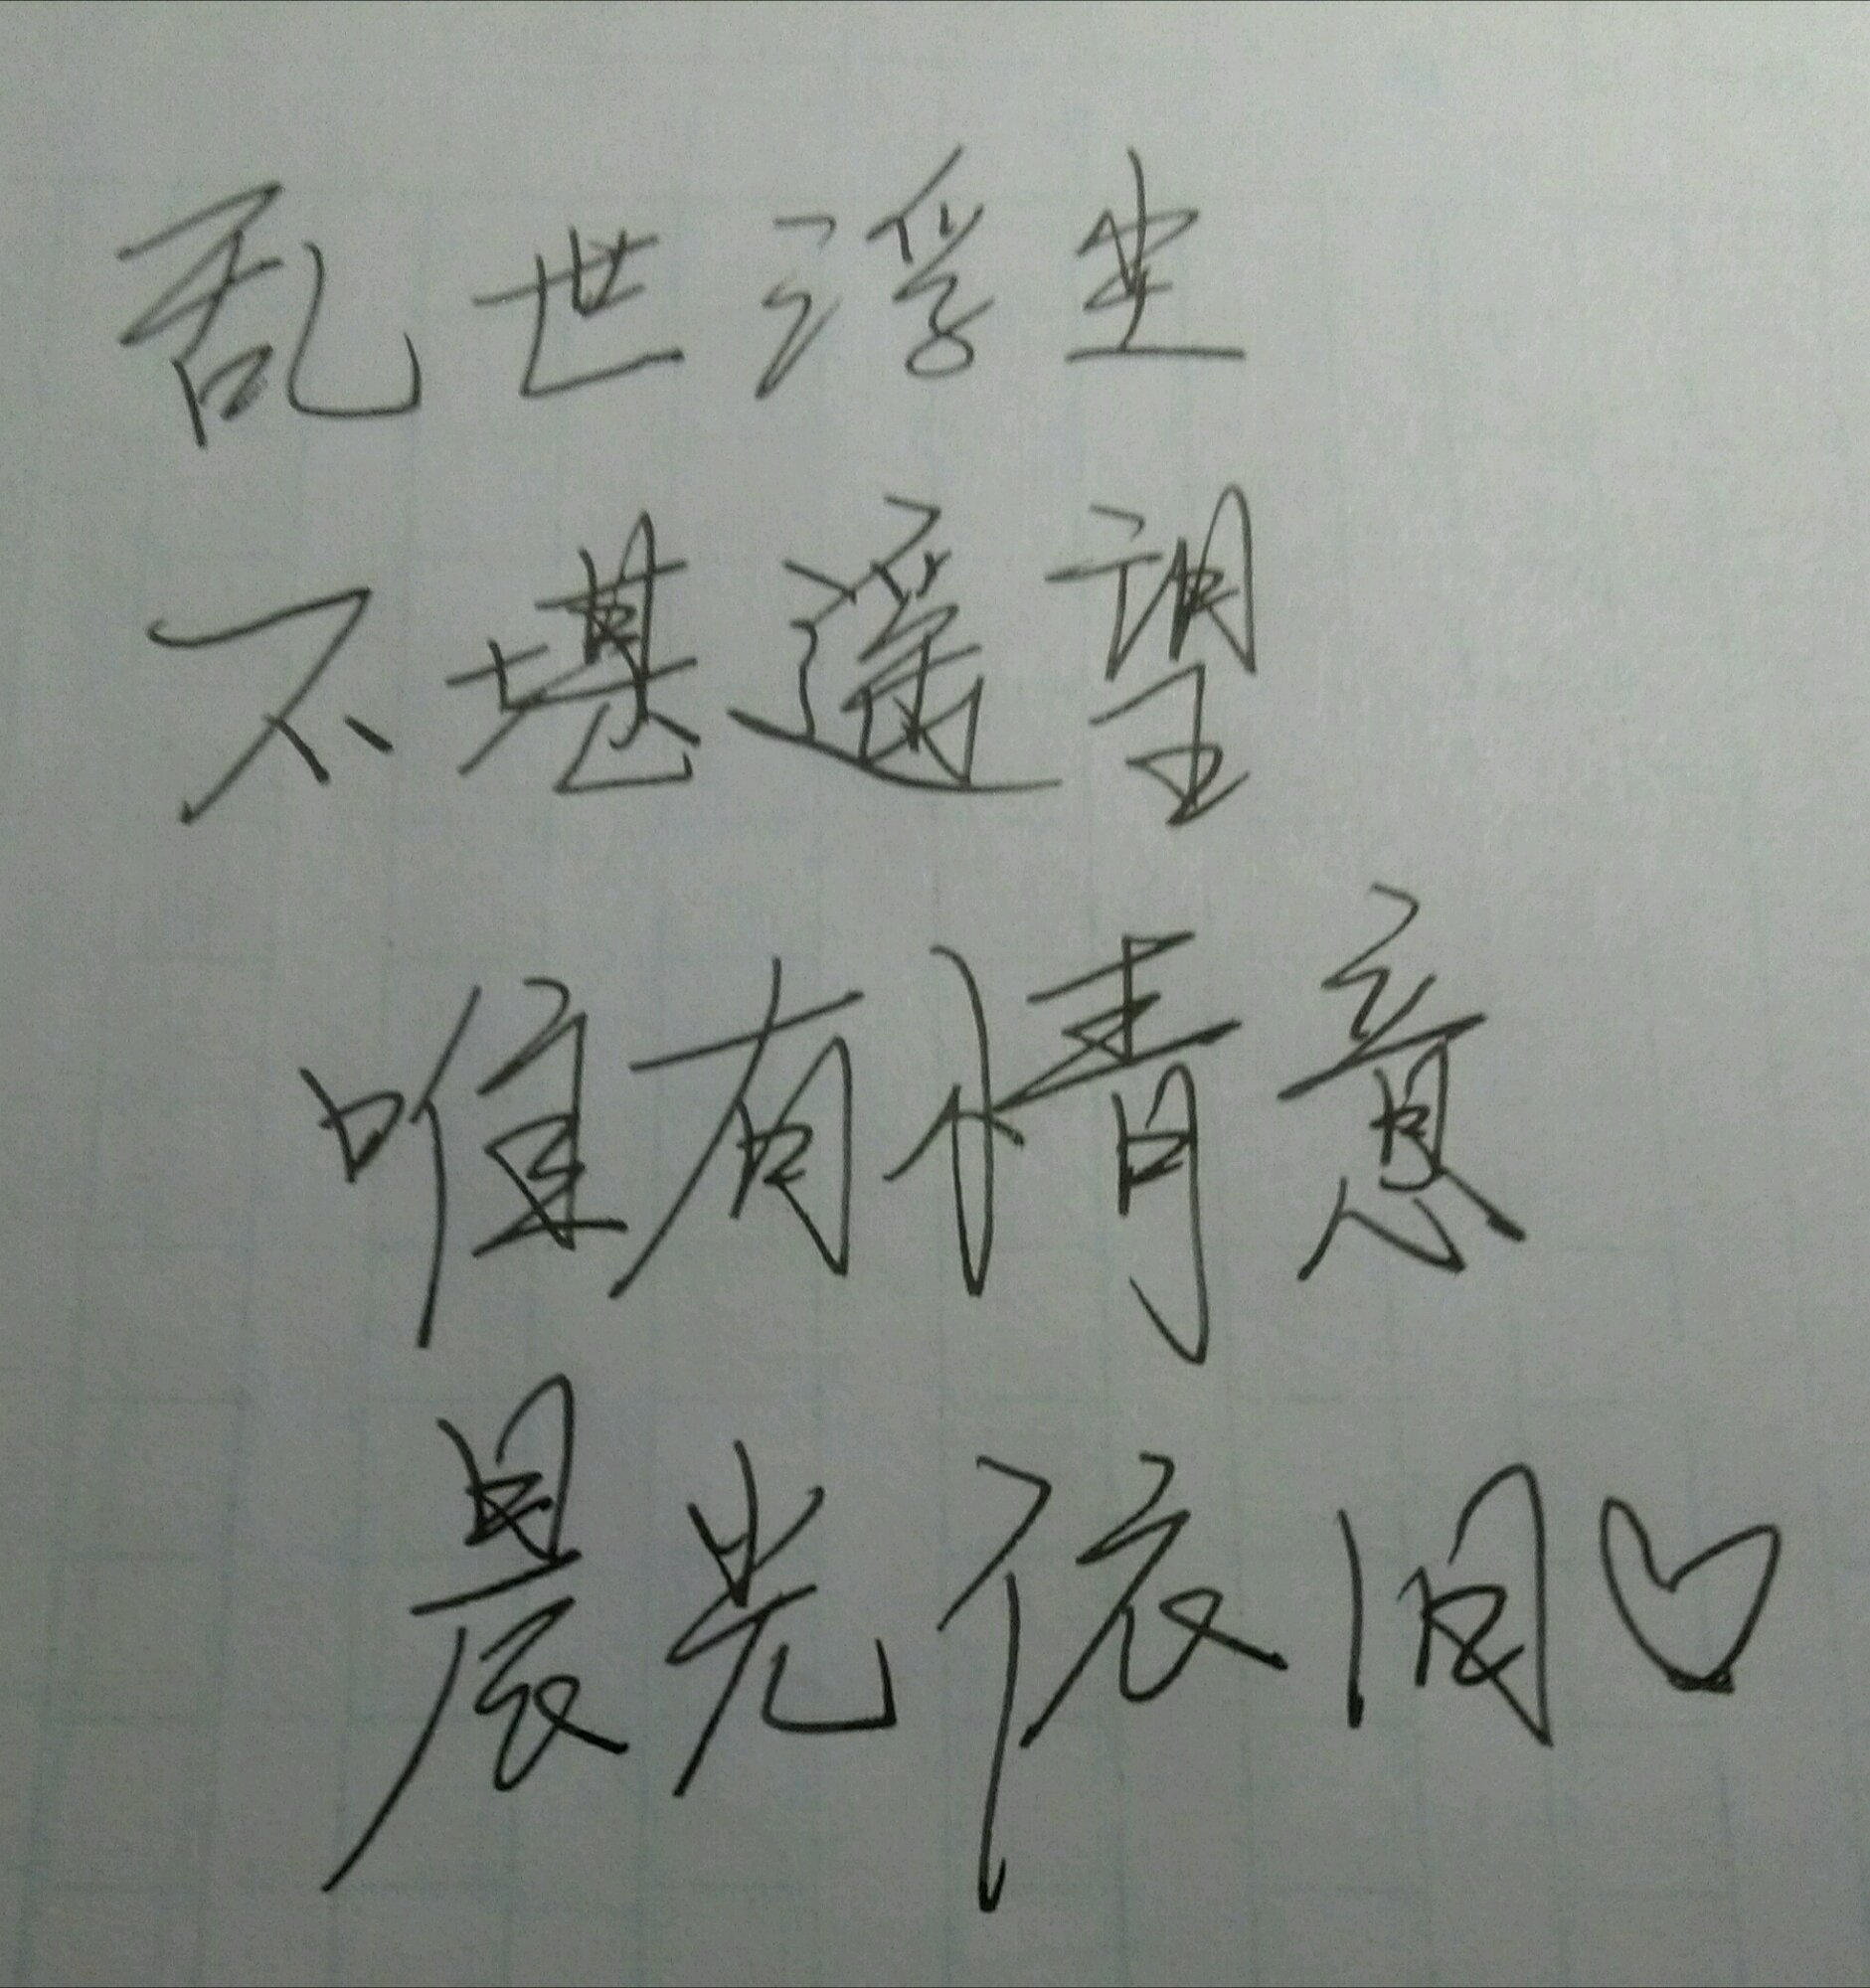 乱世浮尘
不堪遥望
唯有情意
晨光依旧♡